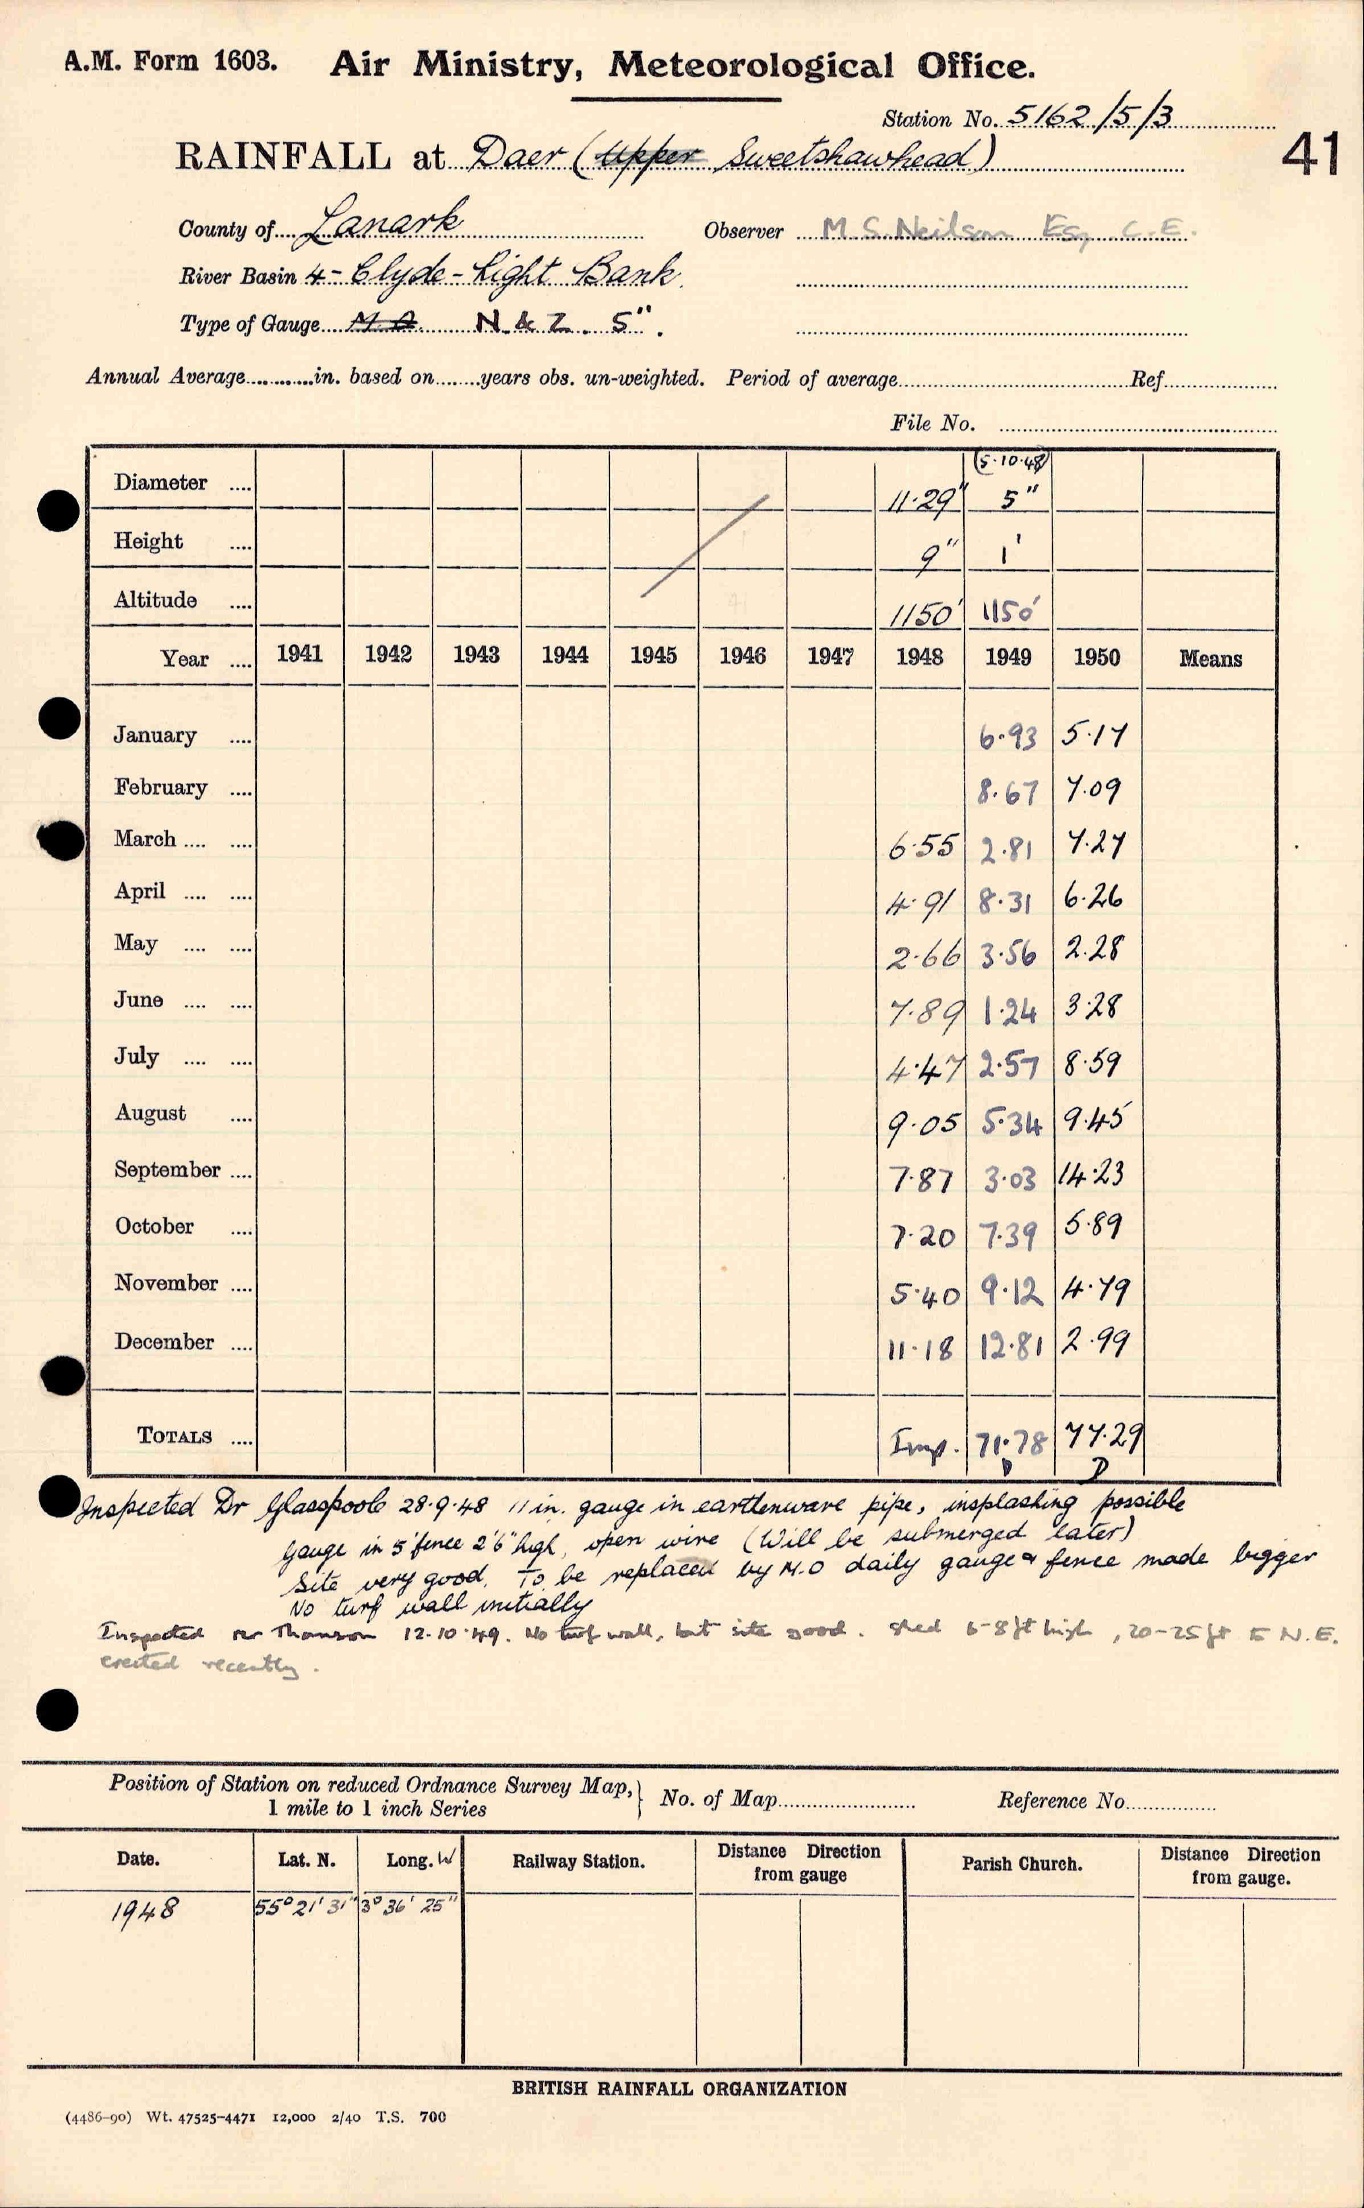 A.M. Form 1603. Air Ministry, Meteorological Office.
Station No. 5162/5/3
41
RAINFALL at Daer (Upper Sweetshawhead)
County of Lanark Observer M.S. Neilson Esq C.E.
River Basin 4 - Clyde - Right Bank
Type of Gauge M.O. N & Z. 5".
Annual Average in. based on years obs. un-weighted. Period of average Ref
File No.
(5.10.48)
Diameter 11.29" 5"
Height 9" 1'
Altitude 1150' 1150'
Year 1941 1942 1943 1944 1945 1946 1947 1948 1949 1950 Means
January 6.93 5.17
February 8.67 7.09
March 6.55 2.81 7.27
April 4.91 8.31 6.26
May 2.66 3.56 2.28
June 7.89 1.24 3.28
July 4.47 2.57 8.59
August 9.05 5.34 9.45
September 7.87 3.03 14.23
October 7.20 7.39 5.89
November 5.40 9.12 4.79
December 11.18 12.81 2.99
TOTALS Imp. 71.78 77.29
D D
Inspected Dr Glasspoole 28.9.48 11 in. gauge in earthenware pipe, insplashing possible
Gauge in 5' fence 2'6" high, open wire (Will be submerged later)
Site very good. To be replaced by M.O daily gauge & fence made bigger
No turf wall initially
Inspected Mr Thomson 12.10.49. No turf wall, but site good. Shed 6-8 ft high, 20-25 ft to N.E.
erected recently.
Position of Station on reduced Ordnance Survey Map, 1 mile to 1 inch Series } No. of Map Reference No.
Date. Lat. N. Long. W Railway Station. Distance Direction from gauge Parish Church. Distance Direction from gauge.
1948 55° 21' 31" 3° 36' 25"
BRITISH RAINFALL ORGANIZATION
(4486-90) Wt. 47525-4471 12,000 2/40 T.S. 700